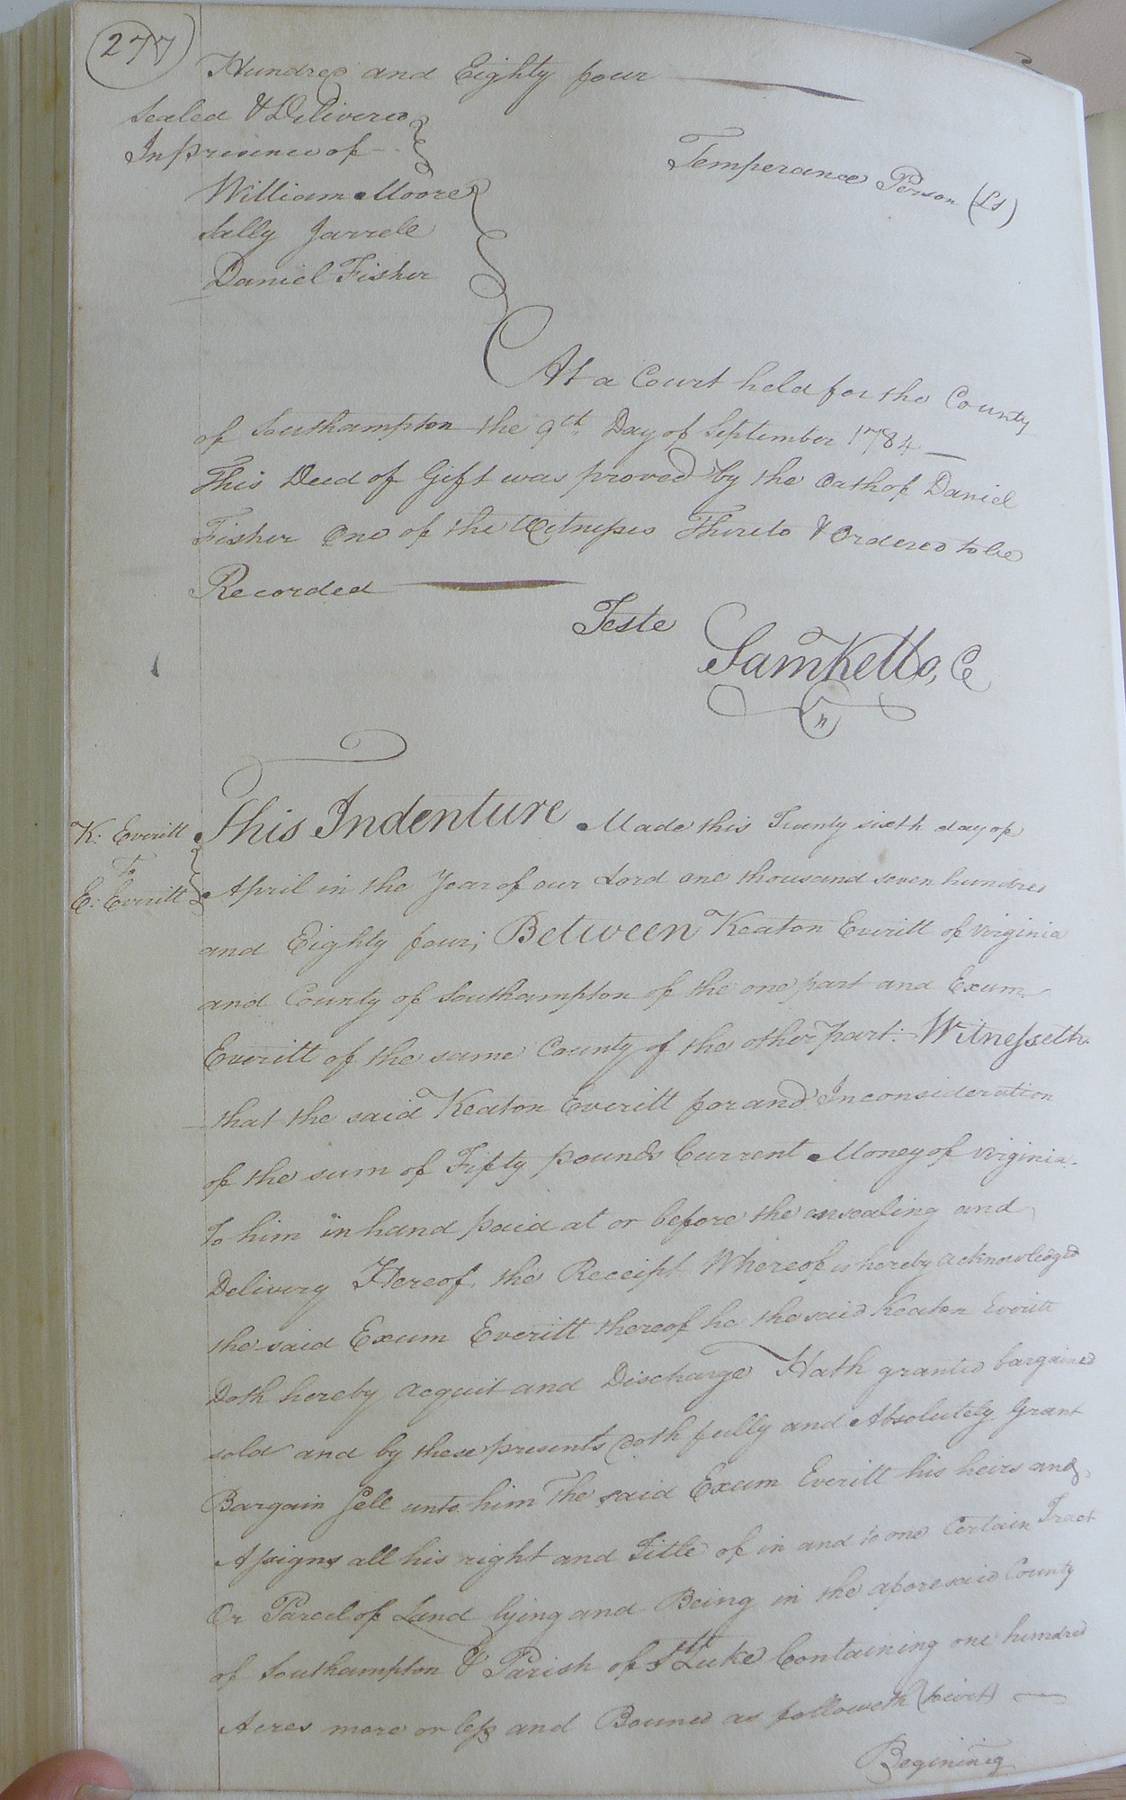 277
Hundred and Eighty four
Sealed & Delivered
In presence of
Temperance Person (LS)
William Moore
Sally Jarrell
Daniel Fisher
At a Court held for the County
of Southampton the 9th Day of September 1784
This Deed of Gift was proved by the Oath of Daniel
Fisher One of the Witnesses Thereto & Ordered to be
Recorded
Teste
Sam Kello, C
K: Everitt
To
E: Everitt
This Indenture Made this Twenty sixth day of
April in the Year of our Lord one thousand seven hundred
and Eighty four; Between Keaton Everitt of Virginia
and County of Southampton of the one part and Exum
Everitt of the same County of the other part: Witnesseth
that the said Keaton Everitt for and In consideration
of the sum of Fifty pounds Current Money of Virginia
To him in hand paid at or before the ensealing and
Delivery Hereof the Receipt Whereof is hereby acknowledged
the said Exum Everitt thereof he the said Keaton Everitt
Doth hereby acquit and Discharge Hath granted bargained
sold and by these presents doth fully and Absolutely Grant
Bargain Sell unto him The said Exum Everitt his heirs and
Assigns all his right and Title of in and to one Certain Tract
Or Parcel of Land lying and Being in the aforesaid County
of Southampton & Parish of St Luke Containing one hundred
Acres more or less and Bouned as followeth (towit)
Begining